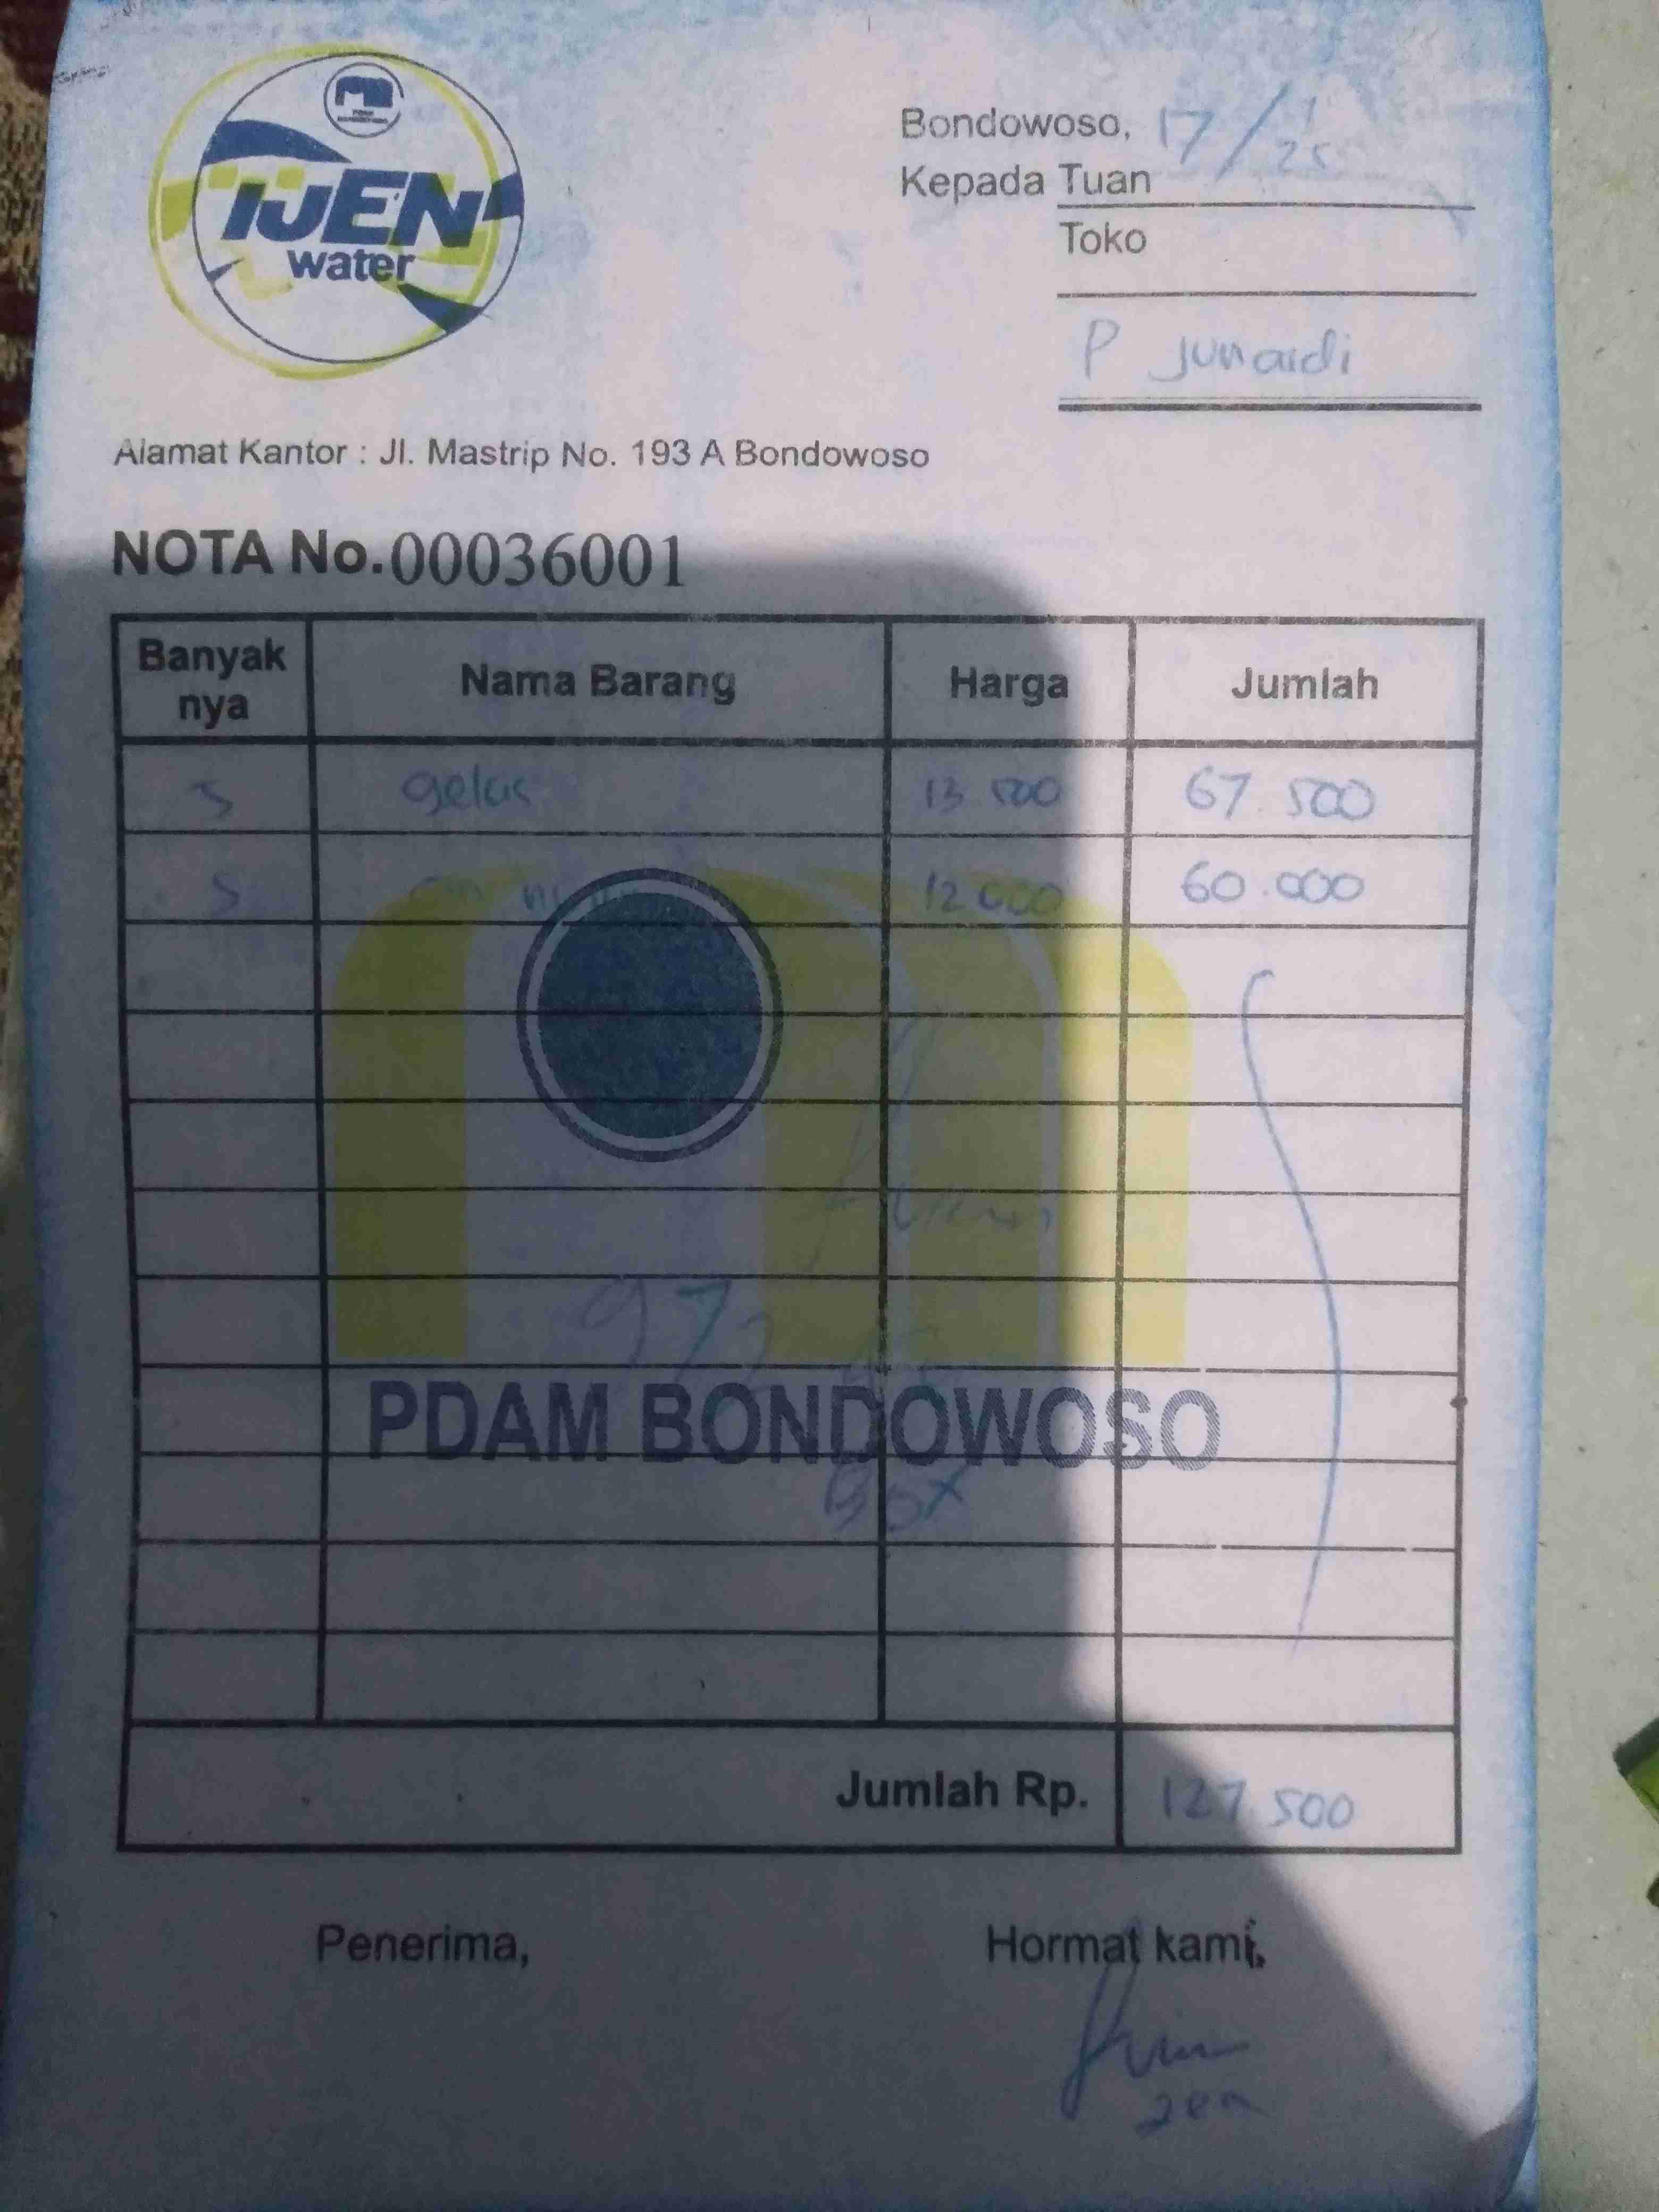 IJEN
water
Bondowoso, 17/1 25
Kepada Tuan
Toko
P Junaidi
Alamat Kantor : Jl. Mastrip No. 193 A Bondowoso
NOTA No. 00036001
Banyak nya Nama Barang Harga Jumlah
5 gelas 13 500 67.500
5 12 000 60.000
972
PDAM BONDOWOSO
Jumlah Rp. 127.500
Penerima, Hormat kami,